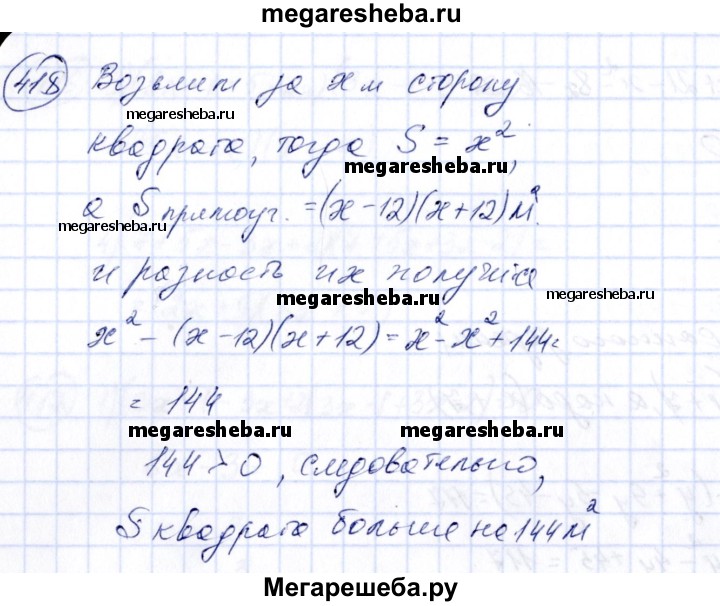 megaresheba.ru
418 Возьмём за x м сторону
megaresheba.ru
квадрата, тогда S = x²,
megaresheba.ru
а S прямоуг. = (x-12)(x+12) м².
megaresheba.ru
и разность их получится
megaresheba.ru
megaresheba.ru
x² - (x-12)(x+12) = x² - x² + 144 =
= 144
megaresheba.ru
megaresheba.ru
144 > 0, следовательно,
S квадрата больше на 144 м²
Мегарешеба.ру